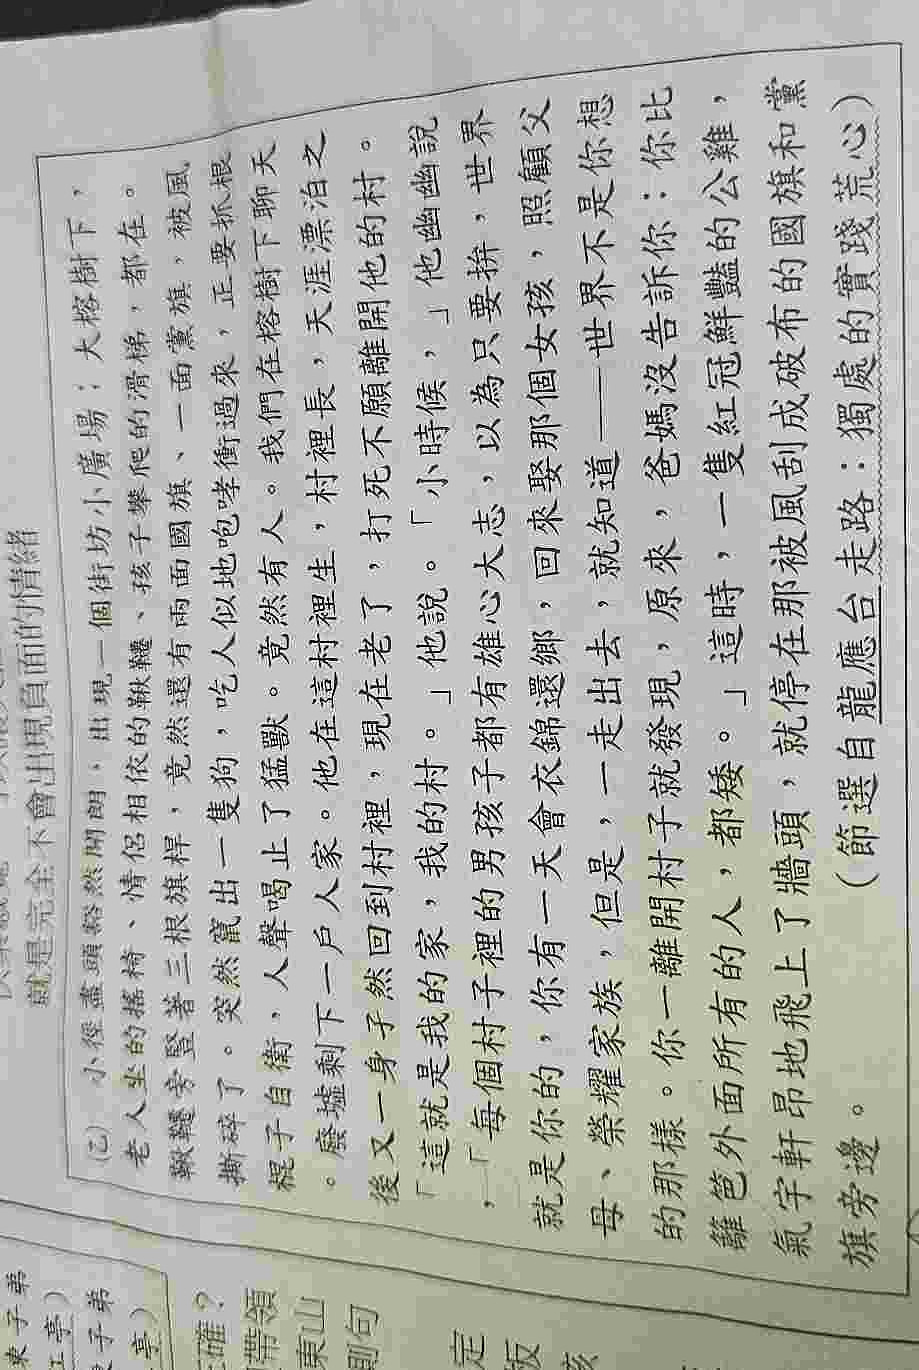 就是完全不會出現負面的情緒
(乙) 小徑盡頭豁然開朗,出現一個街坊小廣場;大榕樹下,
老人坐的搖椅、情侶相依的鞦韆、孩子攀爬的滑梯,都在。
鞦韆旁豎著三根旗桿,竟然還有兩面國旗、一面黨旗,被風
撕碎了。突然竄出一隻狗,吃人似地咆哮衝過來,正要抓根
棍子自衛,人聲喝止了猛獸。竟然有人。我們在榕樹下聊天
。廢墟剩下一戶人家。他在這村裡生,村裡長,天涯漂泊之
後又一身孑然回到村裡,現在老了,打死不願離開他的村。
「這就是我的家,我的村。」他說。「小時候,」他幽幽說
,「每個村子裡的男孩子都有雄心大志,以為只要拚,世界
就是你的,你有一天會衣錦還鄉,回來娶那個女孩,照顧父
母、榮耀家族,但是,一走出去,就知道——世界不是你想
的那樣。你一離開村子就發現,原來,爸媽沒告訴你:你比
籬笆外面所有的人,都矮。」這時,一隻紅冠鮮豔的公雞,
氣宇軒昂地飛上了牆頭,就停在那被風刮成破布的國旗和黨
旗旁邊。
(節選自龍應台走路:獨處的實踐荒心)
東子弟
江亭)
子弟
亭)
確?
帶領
東山
則句
定
版
孩